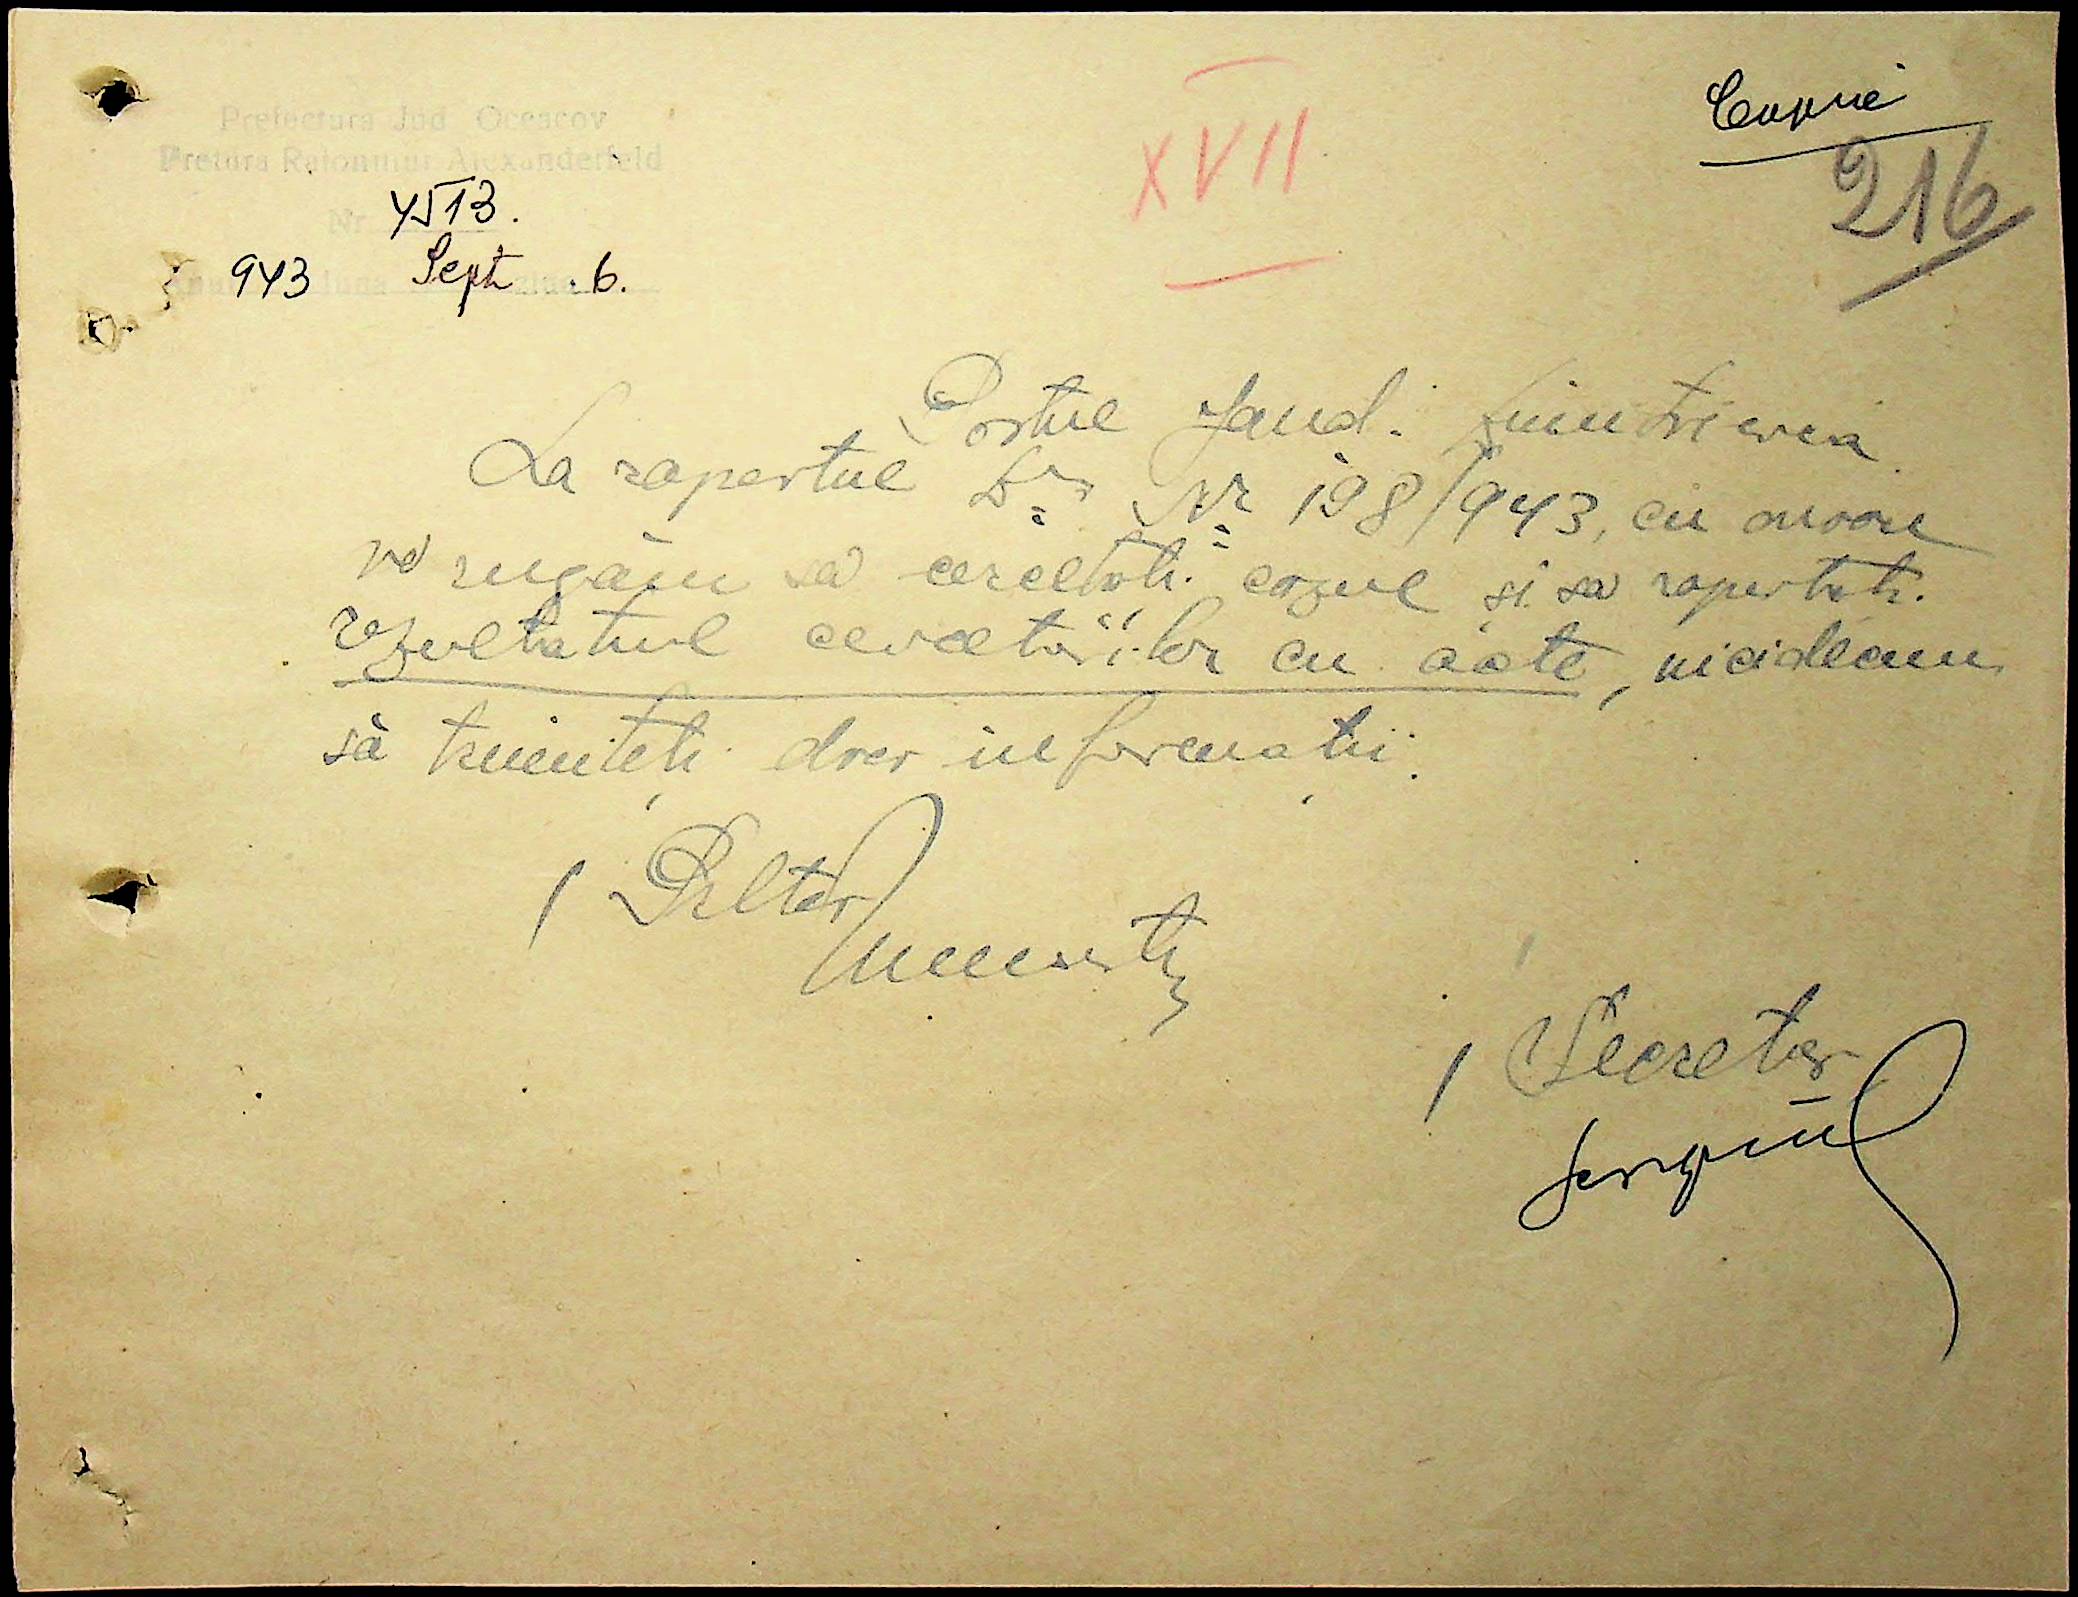 Copie
216
XVII
Prefectura Jud Oceacov
Pretura Raionului Alexanderfeld
Nr 4513.
Anul 943 luna Sept ziua 6.
Postul Jand. Dimitrievca
La raportul Dvs Nr 198/943, cu onoare
vă rugăm să cercetati cazul și să raportati
rezultatul cercetărilor cu acte, nicidecum
să trimiteti doar informatii.
Pretor
Secretar